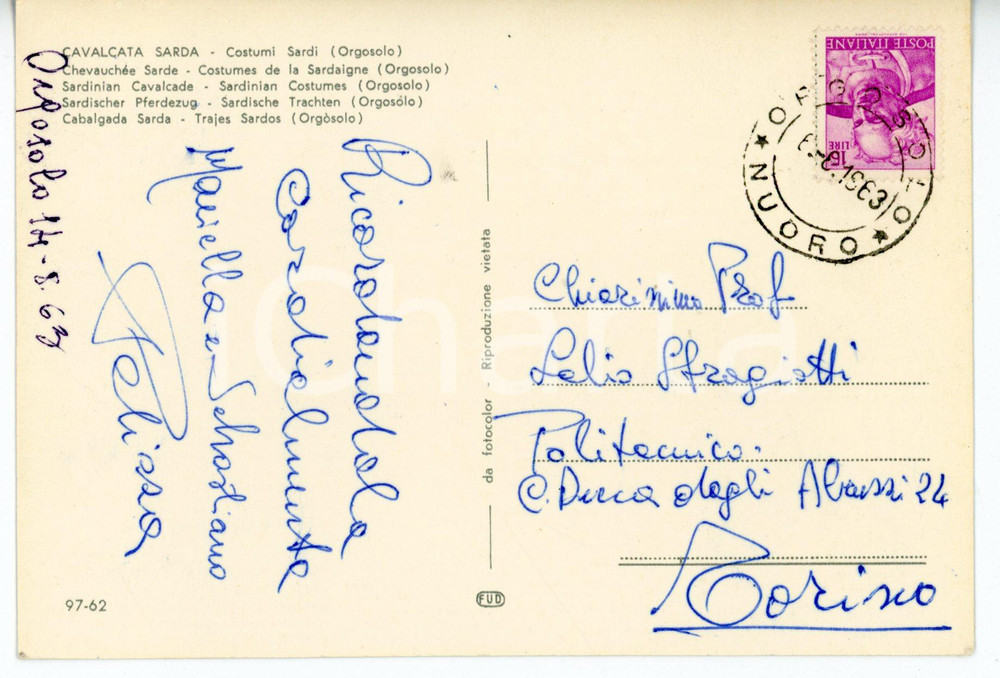 CAVALCATA SARDA - Costumi Sardi (Orgosolo)
Chevauchée Sarde - Costumes de la Sardaigne (Orgosolo)
Sardinian Cavalcade - Sardinian Costumes (Orgosolo)
Sardischer Pferdezug - Sardische Trachten (Orgosòlo)
Cabalgada Sarda - Trajes Sardos (Orgòsolo)
Orgosolo 14-8.63
Ricordandola
Cordialmente
Mariella e Sebastiano
da fotocolor - Riproduzione vietata
POSTE ITALIANE
LIRE 15
ORGOSOLO
1963
★ NUORO ★
Chiarissimo Prof
Lelio Stragiotti
Politecnico.
C. Duca degli Abruzzi 24
Torino
97-62
FUD
iCharta